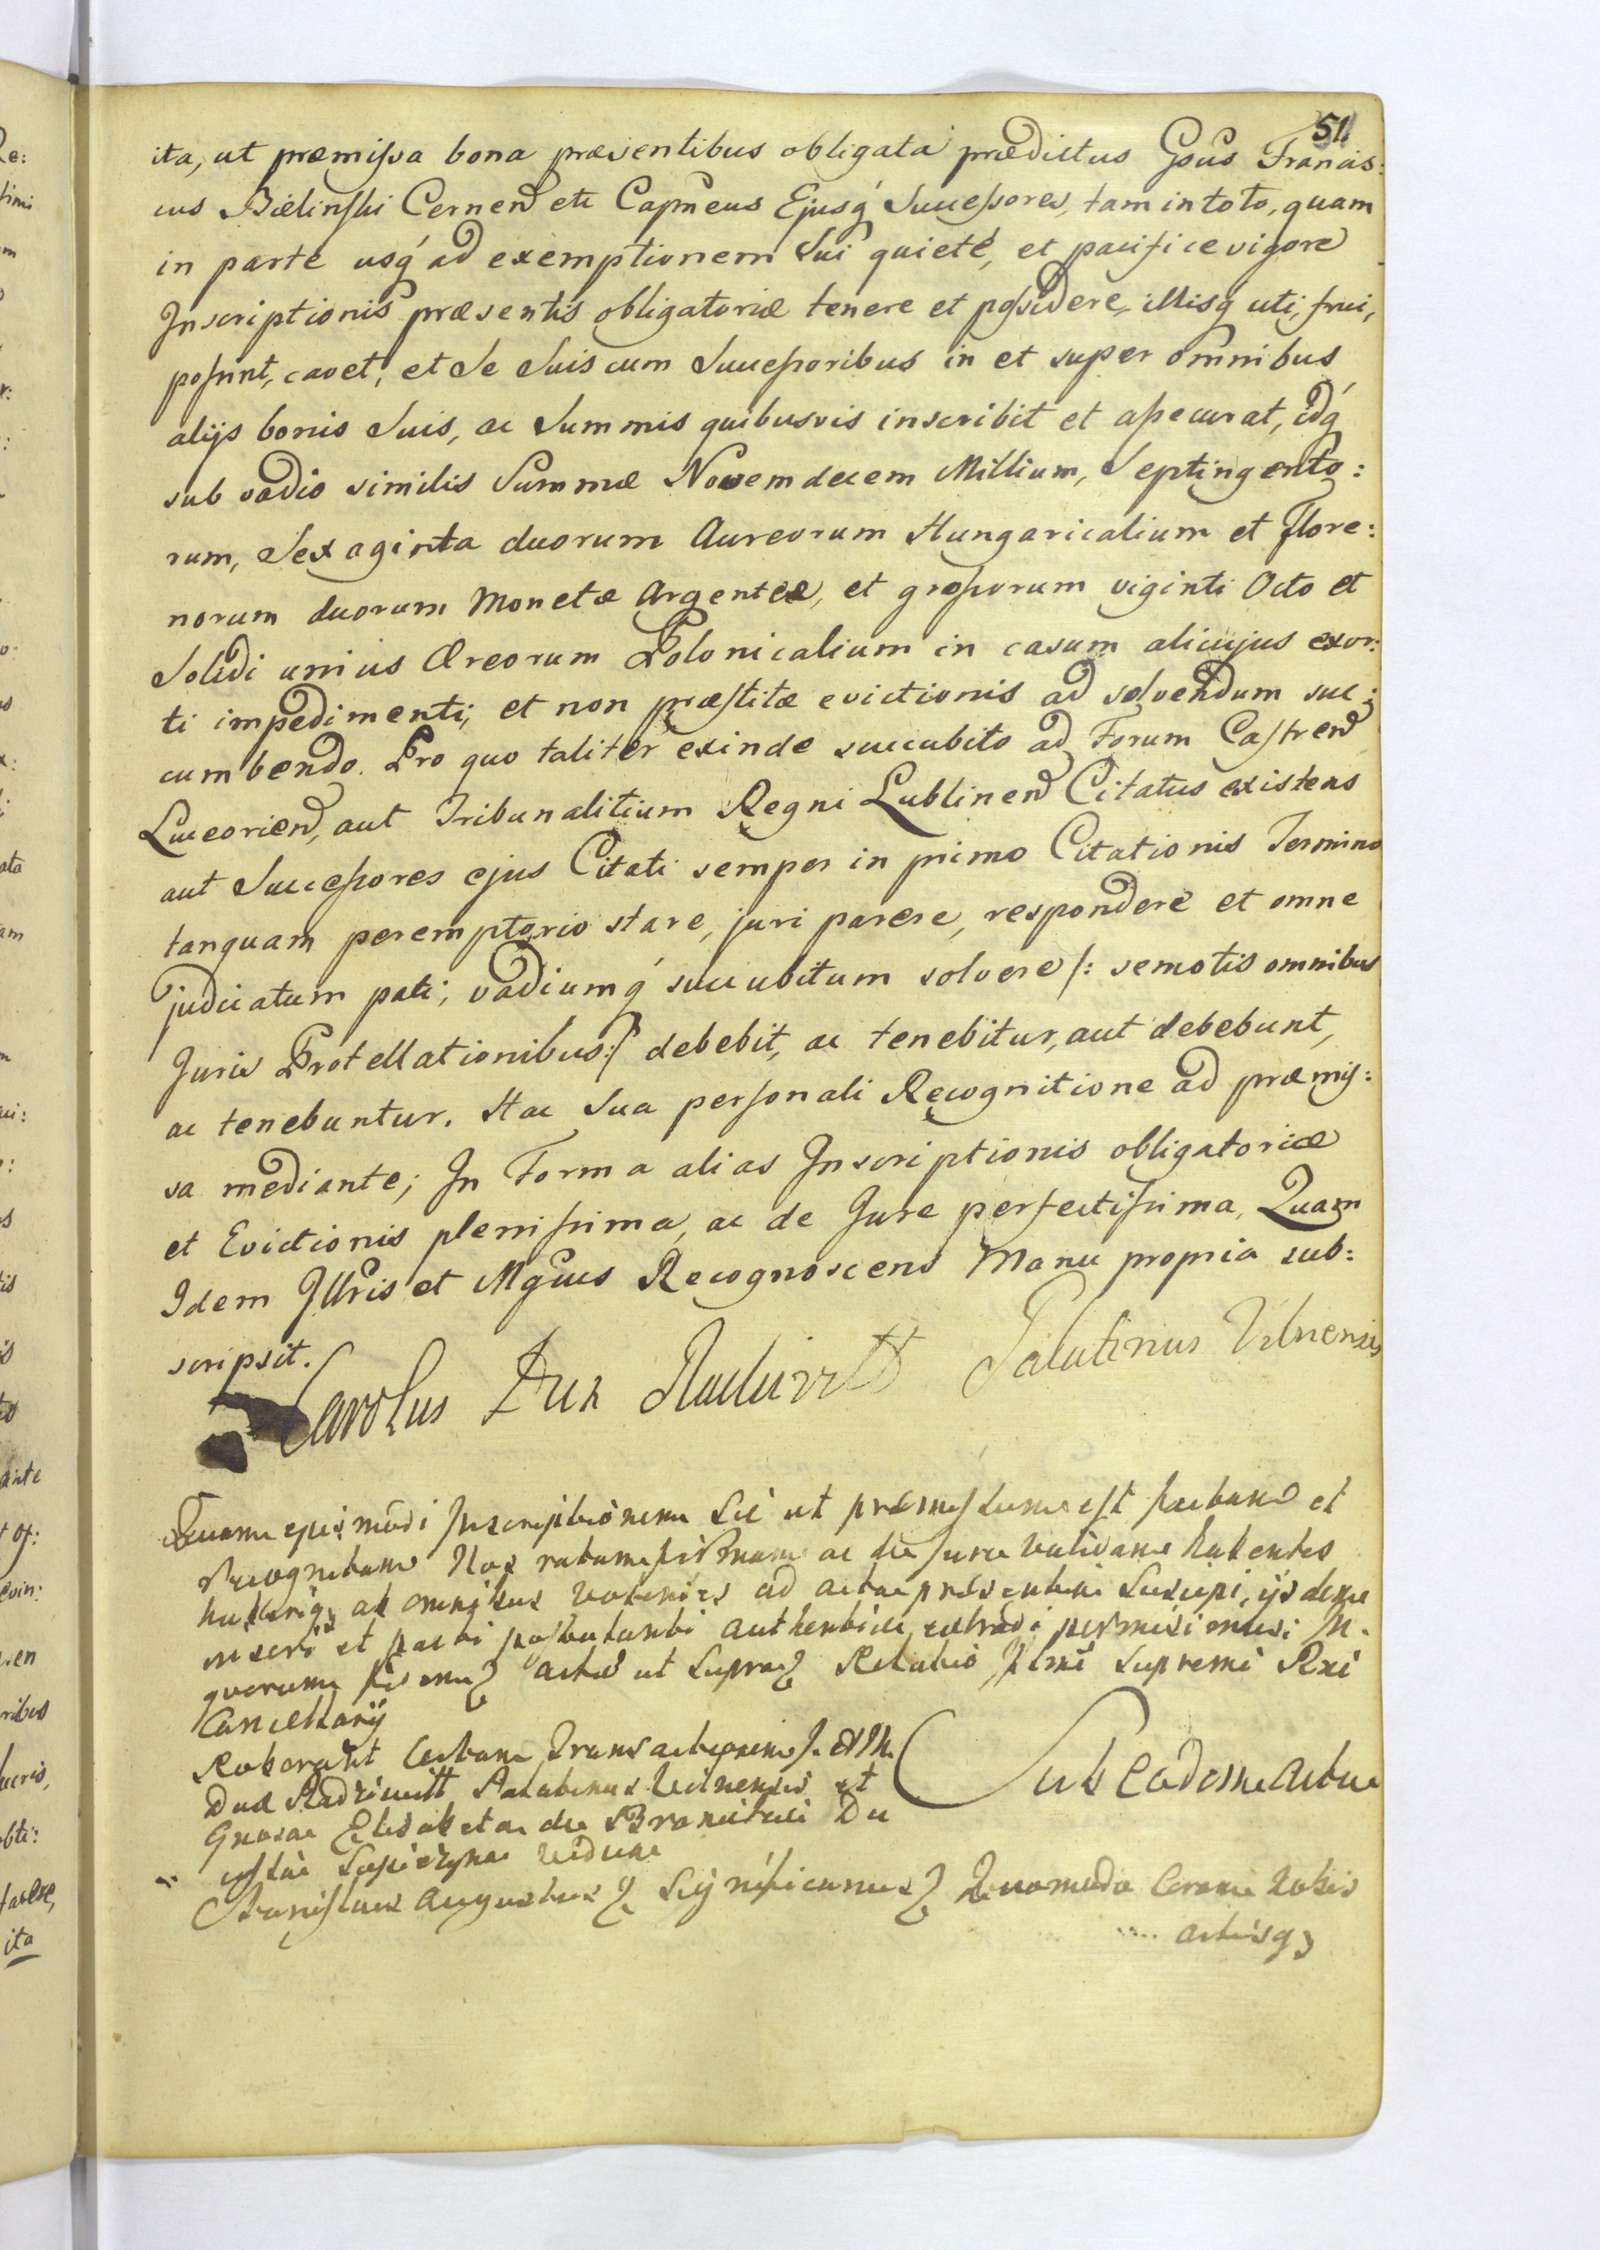 51
ita, ut præmissa bona præsentibus obligata prædictus Gsus Francis:
cus Bielinski Cernend etc Capneus Ejusq́ Successores, tam in toto, quam
in parte usq́ ad exemptionem Sui quieté, et pacifice vigore
Inscriptionis præsentis obligatoriæ tenere et possidere, illisq́ uti, frui,
possint, cavet, et Se Suis cum Successoribus in et super omnibus
alijs bonis Suis, ac Summis quibusvis inscribit et assecurat, idq́
sub vadio similis Summæ Novemdecem Millium, Septingento:
rum, Sexaginta duorum Aureorum Hungaricalium et Flore:
norum duorum Monetæ Argenteæ, et grossorum viginti Octo et
Solidi unius Æreorum Polonicalium in casum alicujus exor:
ti impedimenti, et non præstitæ evictionis ad solvendum suc:
cumbendo. Pro quo taliter exinde succubito ad Forum Castrend
Luceoriend, aut Tribunalitium Regni Lublinend Citatus existens
aut Successores ejus Citati semper in primo Citationis Termino
tanquam peremptorio stare, juri parere, respondere et omne
judicatum pati, vadiumq́ succubitum solvere /: semotis omnibus
Juris Protellationibus :/ debebit, ac tenebitur, aut debebunt,
ac tenebuntur. Hac Sua personali Recognitione ad præmis:
sa mediante; In Forma alias Inscriptionis obligatoriæ
et Evictionis plenissima, ac de Jure perfectissima, Quam
Idem Illris et Mgcus Recognoscens Manu propria sub:
scripsit.
Carolus Dux Radziwill Palatinus Vilnensis
Quam ejusmodi Inscriptionem Sic ut præmissum est factam et
Recognitam Nos ratam firmam ac de jure validam habentes
ab omnibus ad acta præsentia Suscepi, ijsdemque
inseri et parti postulanti authentice extradi permisimus. In
quorum fidem Actum ut Supra Relatio Supremi Rni
Cancellarij
Roborant Certam Transactionem J. et M.
Dux Radziwill Palatinus Vilnensis et
Gnosa Elisabeta de Branickie Du
cissa Sapiezyna Vidua
Sub eadem Actu
Stanislaus Augustus Significamus Quomodo Coram Nobis
Actisq